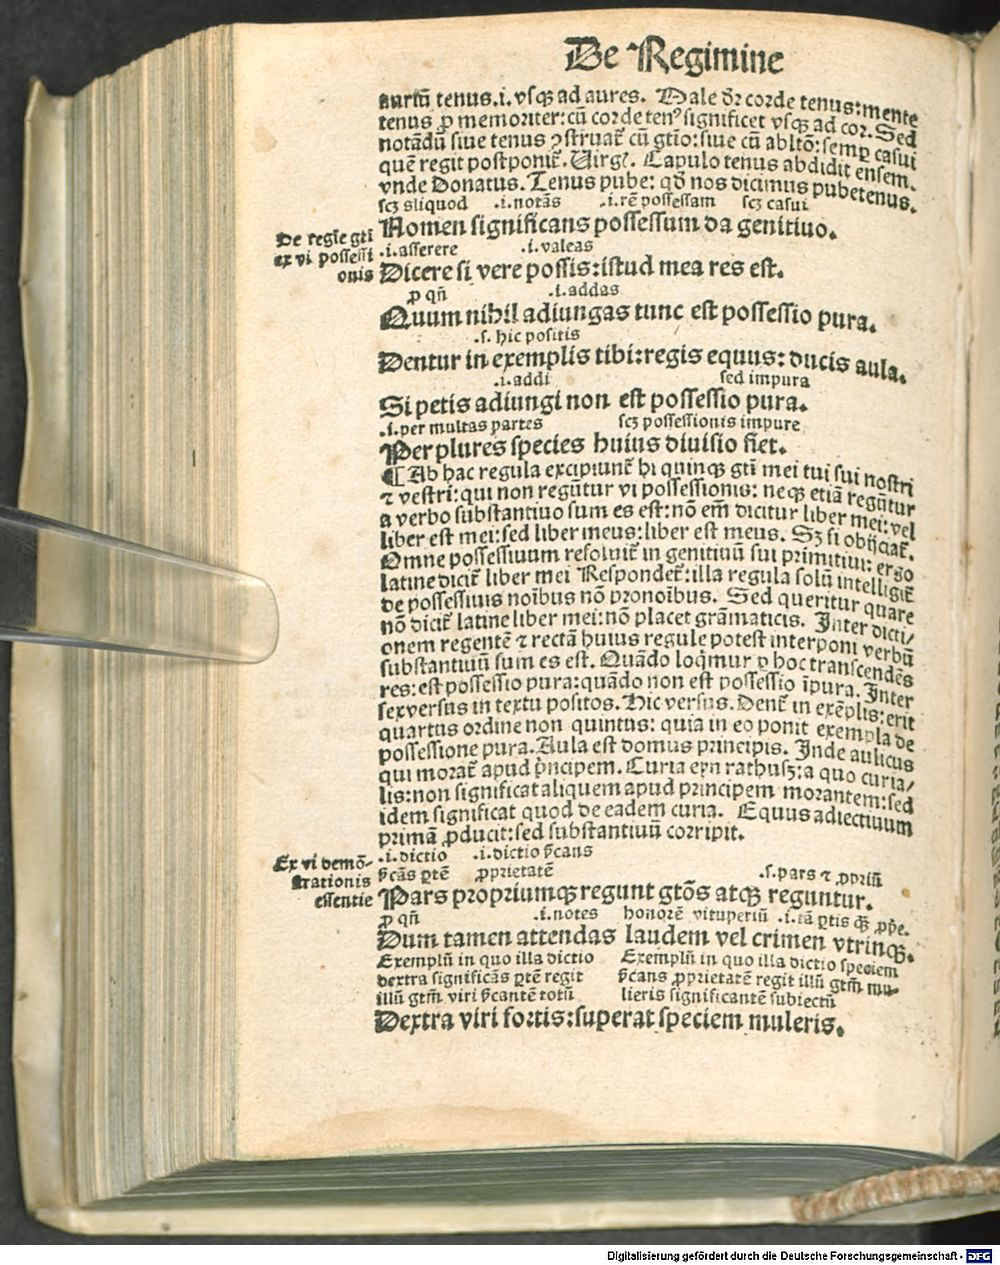 De Regimine
auriū tenus.i.vsqꝫ ad aures. Male dr̄ corde tenus:mente
tenus ꝓ memoriter:cū corde tenꝰ significet vsqꝫ ad cor. Sed
notādū siue tenus ꝯstruat̄ cū gtīo:siue cū abltō:semꝑ casui
quē regit postponit̄. Virgꝉ. Capulo tenus abdidit ensem.
vnde Donatus. Tenus pube: qd̄ nos dicimus pubetenus.
scꝫ aliquod .i.notās .i.rē possessam scꝫ casui
Nomen significans possessum da genitiuo.
De regīe gtī
ex vi possessi
onis
.i.asserere .i.valeas
Dicere si vere possis:istud mea res est.
ꝓ qn̄ .i.addas
Quum nihil adiungas tunc est possessio pura.
.s. hic positis
Dentur in exemplis tibi:regis equus: ducis aula.
.i.addi sed impura
Si petis adiungi non est possessio pura.
.i.per multas partes scꝫ possessionis impure
Per plures species huius diuisio fiet.
¶ Ab hac regula excipiunt̄ hi quinqꝫ gtī mei tui sui nostri
⁊ vestri:qui non regūtur vi possessionis: neqꝫ etiā regūtur
a verbo substantiuo sum es est:nō em̄ dicitur liber mei:vel
liber est mei:sed liber meus:liber est meus. Sꝫ si obijciat̄.
Omne possessiuum resoluit̄ in genitiuū sui primitiui: ergo
latine dicit̄ liber mei Respondet̄:illa regula solū intelligit̄
de possessiuis noībus nō pronoībus. Sed queritur quare
nō dicit̄ latine liber mei:nō placet grāmaticis. Inter dicti/
onem regentē ⁊ rectā huius regule potest interponi verbū
substantiuū sum es est. Quādo loqͥmur ꝑ hoc transcendēs
res:est possessio pura:quādo non est possessio īpura. Inter
sex versus in textu positos. Hic versus. Dent̄ in exēplis:erit
quartus ordine non quintus: quia in eo ponit exempla de
possessione pura. Aula est domus principis. Inde aulicus
qui morat̄ apud pͥncipem. Curia eyn rathusꝫ:a quo curia/
lis:non significat aliquem apud principem morantem:sed
idem significat quod de eadem curia. Equus adiectiuum
primā ꝓducit:sed substantiuū corripit.
Ex vi demō-
strationis
essentie
.i.dictio .i.dictio sͥcans
sͥcās ꝑtē ꝓprietatē .s.pars ⁊ ꝓpriū
Pars propriumqꝫ regunt gtōs atqꝫ reguntur.
ꝓ qn̄ .i.notes honorē vituperiū .i.tā ꝑtis qꝫ ꝓpͥe.
Dum tamen attendas laudem vel crimen vtrinqꝫ.
Exemplū in quo illa dictio Exemplū in quo illa dictio speciem
dextra significās ꝑtē regit sͥcans ꝓprietatē regit illū gtm̄ mu-
illū gtm̄ viri sͥcantē totū lieris significantē subiectū
Dextra viri fortis:superat speciem muleris.
Digitalisierung gefördert durch die Deutsche Forschungsgemeinschaft - DFG